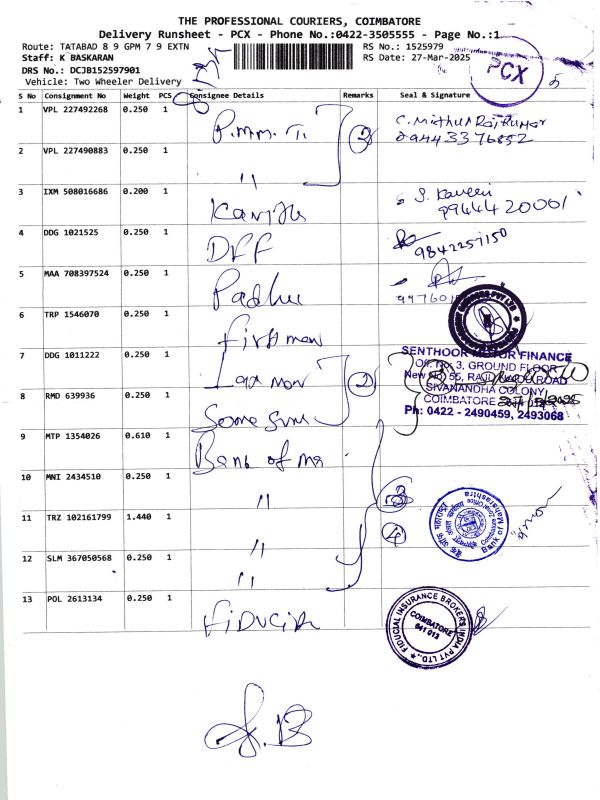 THE PROFESSIONAL COURIERS, COIMBATORE
Delivery Runsheet - PCX - Phone No.:0422-3505555 - Page No.:1
Route: TATABAD 8 9 GPM 7 9 EXTN
RS No.: 1525979
Staff: K BASKARAN
RS Date: 27-Mar-2025
DRS No.: DCJB152597901
Vehicle: Two Wheeler Delivery
PCX
S No Consignment No Weight PCS Consignee Details Remarks Seal & Signature
1 VPL 227492268 0.250 1 P.M.M. Ti. 2 C. Mithun Rajkumar
09443376852
2 VPL 227490883 0.250 1 "
3 IXM 508016686 0.200 1 Kavitha S. Kaveri
9944420001
4 DDG 1021525 0.250 1 DFF 9842257150
5 MAA 708397524 0.250 1 Padhu
6 TRP 1546070 0.250 1 First man
7 DDG 1011222 0.250 1 Lax man 2
SENTHOOR MOTOR FINANCE
Off. No: 3, GROUND FLOOR
New No: 55, RAJU NAIDU ROAD
SIVANANDHA COLONY
COIMBATORE
Ph: 0422 - 2490459, 2493068
8 RMD 639936 0.250 1 Some Sun
9 MTP 1354026 0.610 1 Bank of ma
10 MNI 2434510 0.250 1 "
11 TRZ 102161799 1.440 1 " 4
Bank of Maharashtra
Coimbatore
12 SLM 367050568 0.250 1 "
13 POL 2613134 0.250 1 Fiducia
FIDUCIAL INSURANCE BROKERS INDIA PVT LTD.,
COIMBATORE
641 013